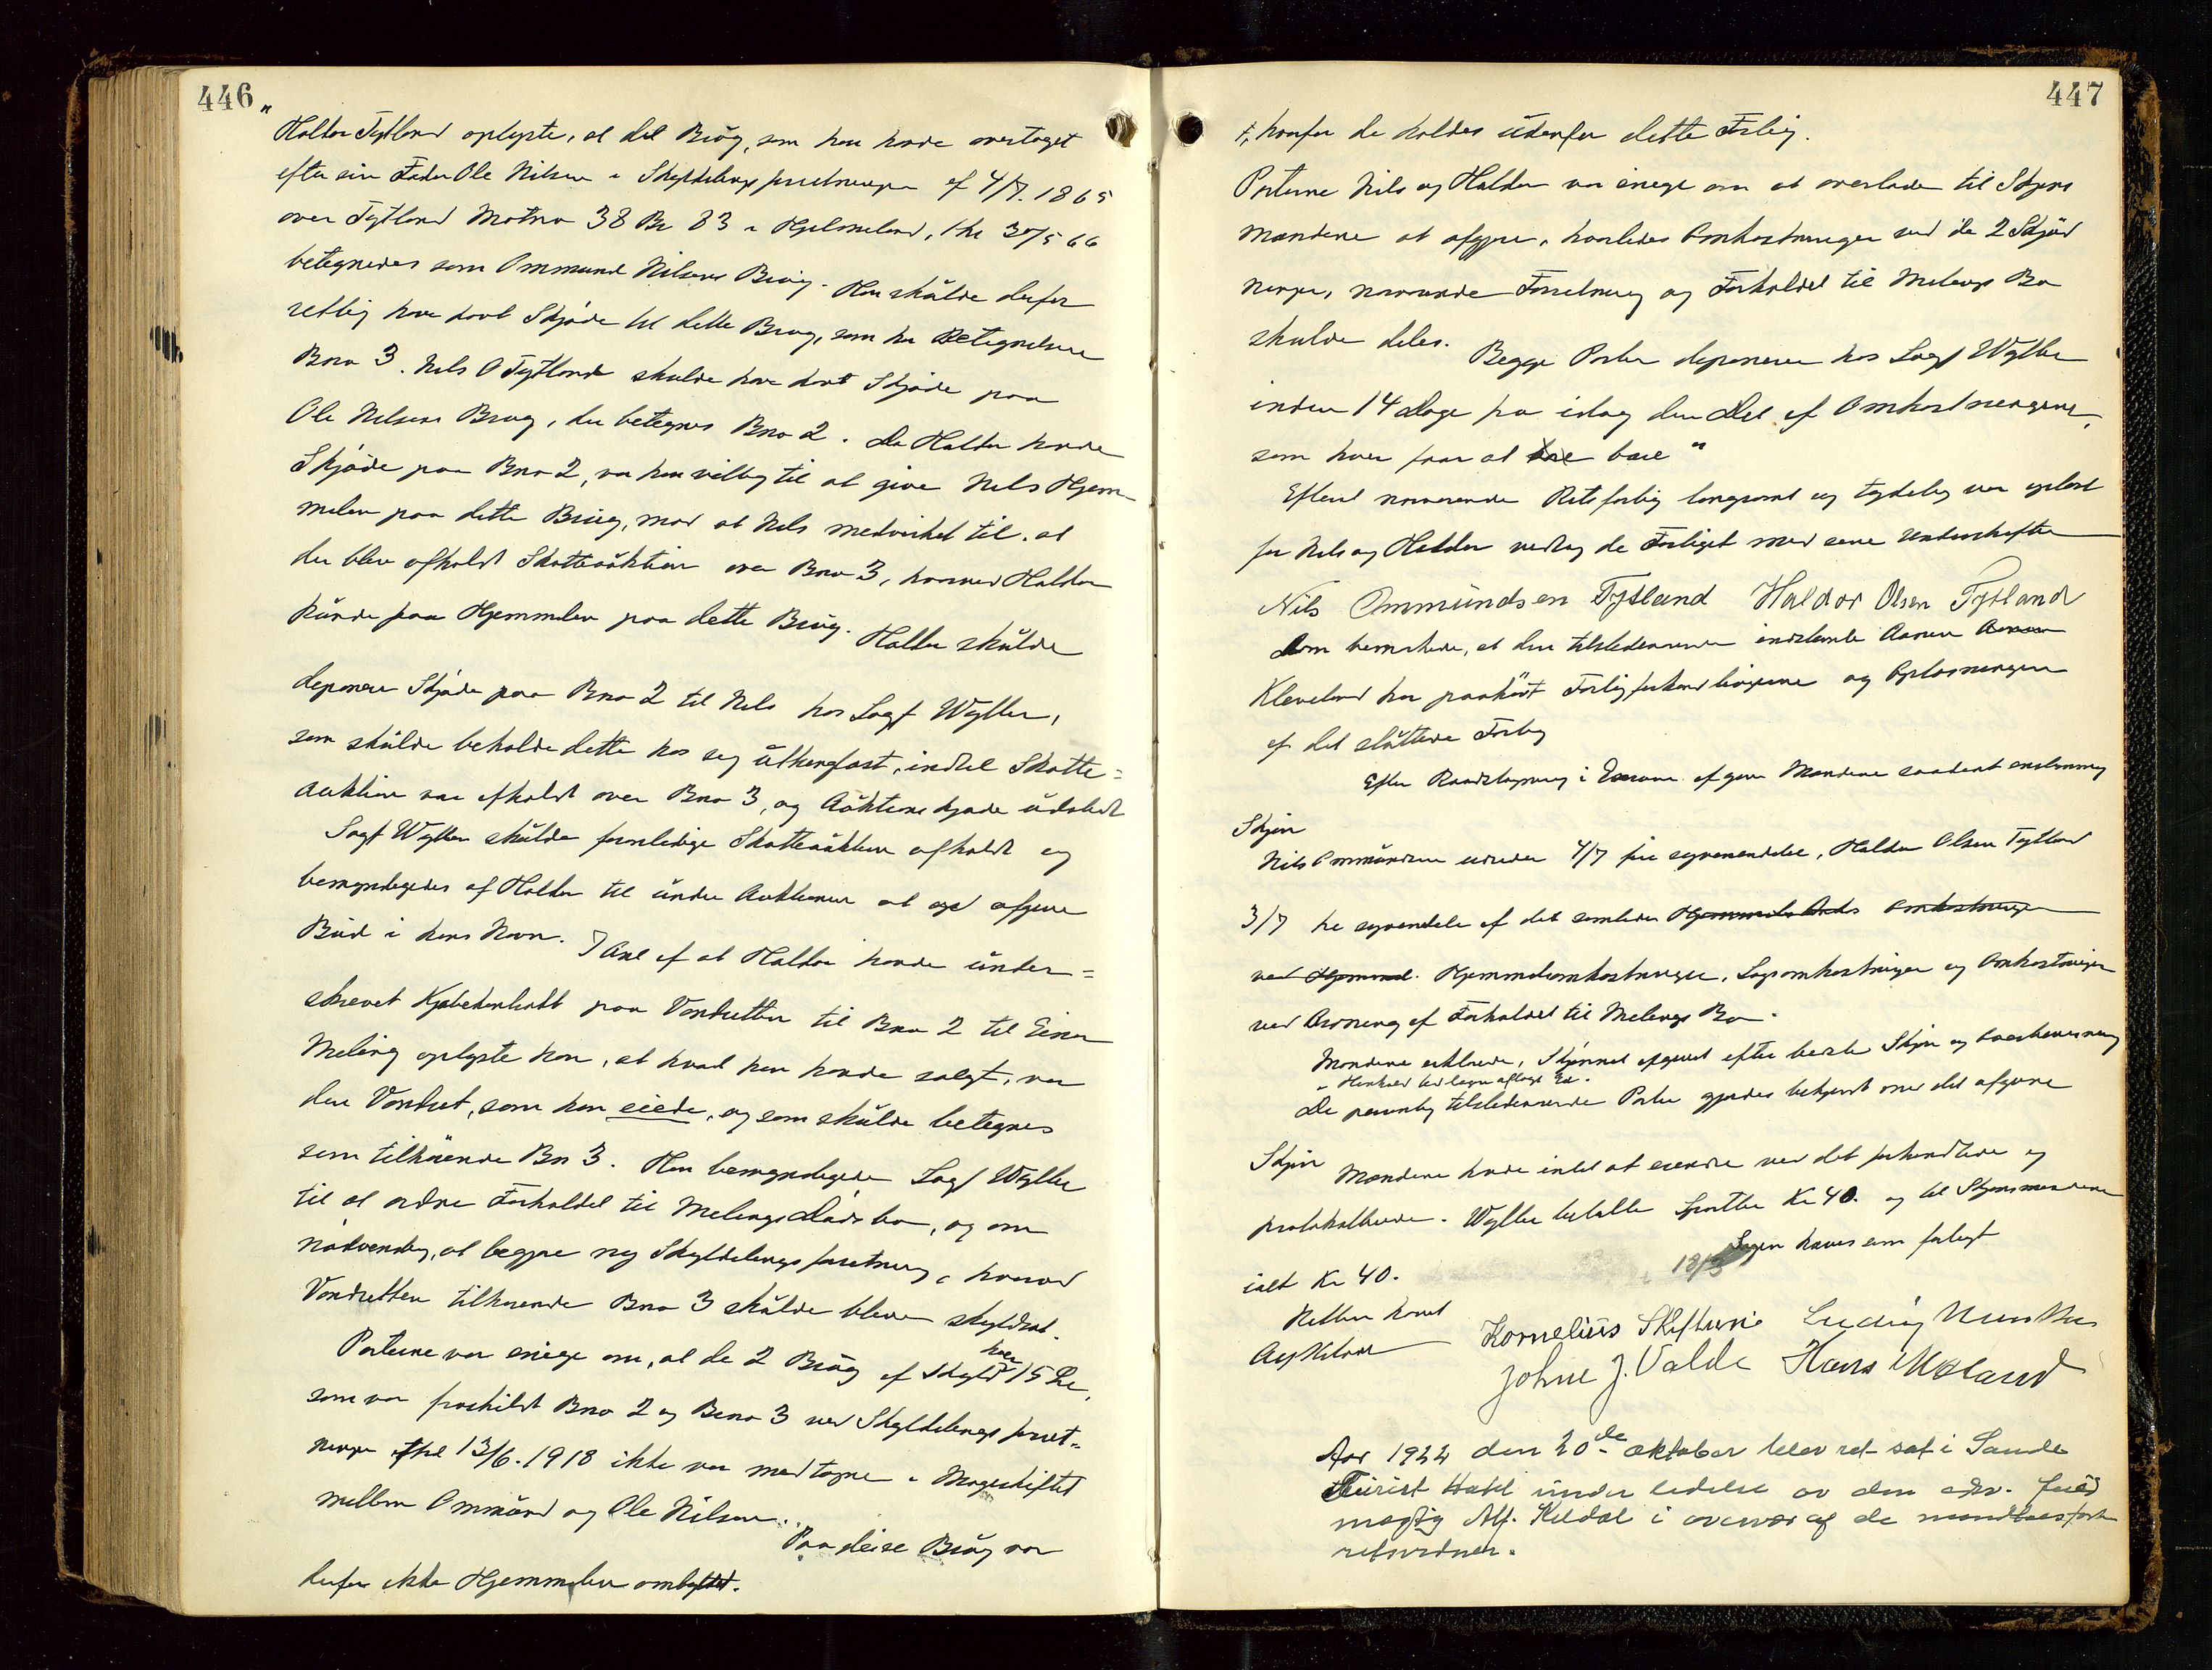 446
"
Haldor Tytland oplyste, at det Brug, som han havde overtaget
efter sin Fader Ole Nilsen i Skyldelingsforretningen af 4/7. 1865
over Tytland Matno 38 Bn 83 i Hjelmeland, thl 30/5 66
betegnedes som Ommund Nilsens Brug. Han skulde derfor
rettelig have havt Skjøde til dette Brug, som har Betegnelsen
Bno 3. Nils O Tytland skulde have havt Skjøde paa
Ole Nilsens Brug, der betegnes Bno 2. Da Haldor havde
Skjøde paa Bno 2, var han villig til at give Nils Hjem-
melen paa dette Brug, mod at Nils medvirket til, at
der blev afholdt Skatteauktion over Bno 3, hvorved Haldor
kunde faa Hjemmelen paa dette Brug. Haldor skulde
deponere Skjøde paa Bno 2 til Nils hos Sagf Wyller,
som skulde beholde dette hos sig indtil Skatte=
auktion var afholdt over Bno 3, og Auktionsskjøde udstedt
Sagf Wyller skulde foranledige Skatteauktion afholdt og
bemyndigedes af Haldor til under Auktionen at afgive
Bud i hans Navn. I Anl af at Haldor havde under=
skrevet Kjøbekontrakt paa Vandretten til Bno 2 til Einar
Meling oplyste han, at hvad han havde solgt, var
den Vandret, som han eiede, og som skulde betegnes
som tilhørende Bn 3. Han bemyndigede Sagf Wyller
til at ordne Forholdet til Melings Dødsbo, og om
nødvendig, at begjære ny Skyldelingsforretning, hvorved
Vandretten tilhørende Bno 3 skulde blive skyldsat.
Parterne var enige om, at de 2 Brug af Skyld hver 15 Øre,
som var fraskilt Bno 2 og Bno 3 ved Skyldelingsforret-
ningen thl 13/6. 1918 ikke var medtagne i Mageskiftet
mellem Ommund og Ole Nilsen.
Paa disse Brug var
derfor ikke Hjemmelen ombyttet.
447
hvorfor de holdes udenfor dette Forlig.
Parterne Nils og Haldor var enige om at overlade til Skjøns
mændene at afgjøre, hvorledes Omkostninger ved de 2 Skjød
ninger, nærværende Forretning og Forholdet til Melings Bo
skulde deles.
Begge Parter deponerer hos Sagf Wyller
inden 14 Dage fra idag den Del af Omkostningerne,
som hver faar at bære"
Efterat nærværende Retsforlig langsomt og tydelig var oplæst
for Nils og Haldor vedtog de Forliget med sine Underskrifter
Nils Ommundsen Tytland Haldor Olsen Tytland
Dom bemerkede, at den tilstedeværende indstevnte Aanen
Kleveland har paahørt Forligsforhandlingerne og Oplæsningen
af det sluttede Forlig
Efter Raadslagning i Enrum afgav Mændene saadant enstemmig
Skjøn
Nils Ommundsen udreder 4/7 fire syvendedele, Haldor Olsen Tytland
3/7 tre syvendele af det samlede Omkostninger
ved Hjemmelsomkostninger, Sagsomkostninger og Omkostninger
ved Ordning af Forholdet til Melings Bo.
Mændene erklærede, Skjønnet afgivet efter bedste Skjøn og Overbevisning
i Henhold til deres aflagte Ed.
De personlig tilstedeværende Parter gjordes bekjendt med det afgivne
Skjøn
Mændene havde intet at erindre ved det forhandlede og
protokollerede. Wyller betalte Sportler Kr 40. og til Skjønsmændene
ialt Kr 40.
Sagen hæves som forligt
18/3
Retten hævet
Alf Kildal
Kornelius Skiftun Ludvig Munthe
Johne J. Valde Hans Møland
Aar 1922 den 20de oktober blev ret sat i Sande
Turist Hotel under ledelse av den edsv. fuld
mægtig Alf. Kildal i overvær af de mandtalsførte
retsvidner.